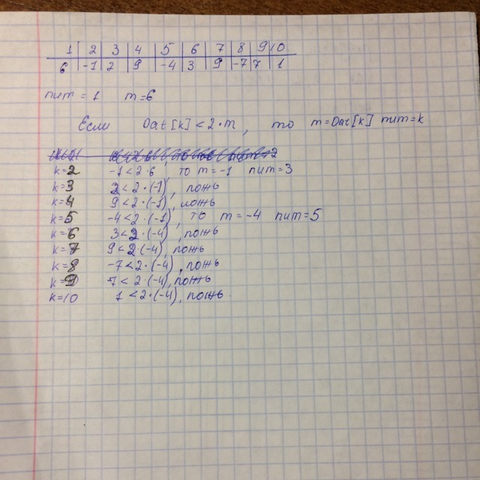 1 2 3 4 5 6 7 8 9 10
6 -1 2 9 -4 3 9 -7 7 1
num = 1 m=6
Если Dat[k] < 2·m, то m=Dat[k] num=k
k=2 -1<2·6, то m=-1 num=3
k=3 2<2·(-1), ложь
k=4 9<2·(-1), ложь
k=5 -4<2·(-1), то m=-4 num=5
k=6 3<2·(-4), ложь
k=7 9<2·(-4), ложь
k=8 -7<2·(-4), ложь
k=9 7<2·(-4), ложь
k=10 1<2·(-4), ложь.